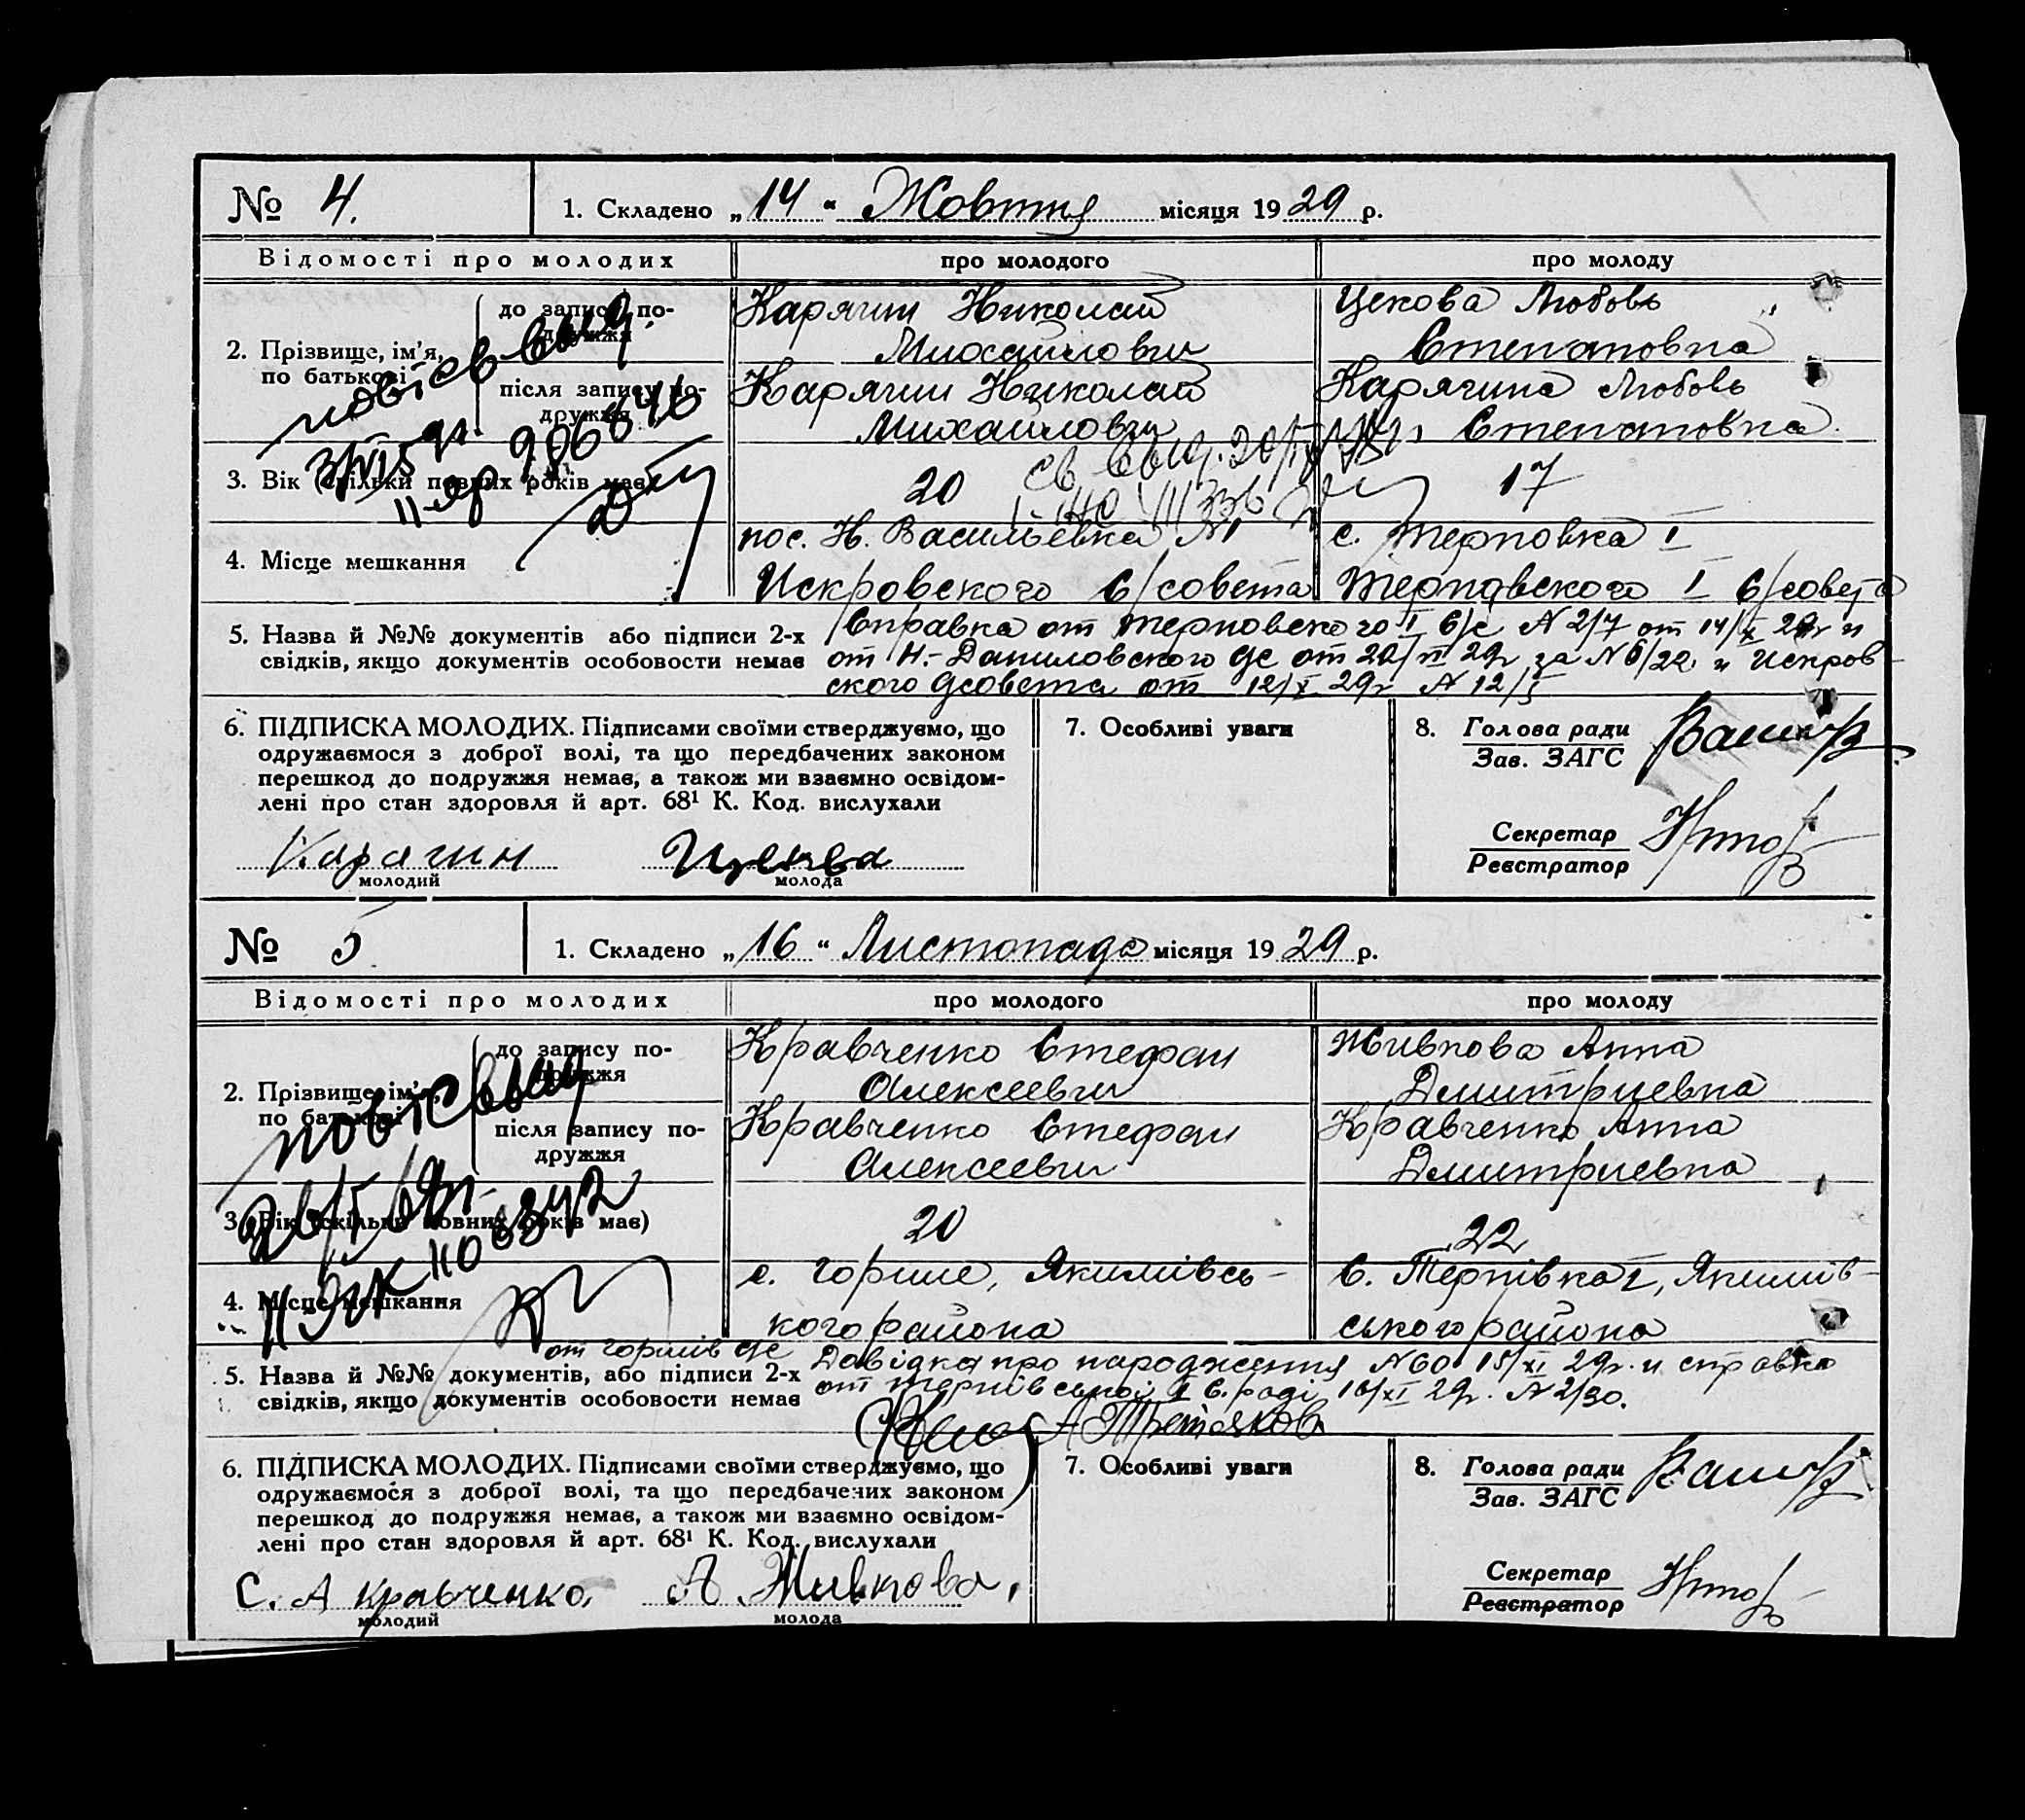 № 4. 1. Складено „14“ Жовтня місяця 1929 р.
Відомості про молодих про молодого про молоду
2. Прізвище, ім’я, по батькові
до запису подружжя
Карягин Николай
Михайлович
Цекова Любовь
Степановна
після запису подружжя
Карягин Николай
Михайлович
Карягина Любовь
Степановна
повт св выд.
3. Вік (скільки повних років має) 20 17
4. Місце мешкання
пос. Н. Васильевка №1
Искровского с/совета
с. Терновка I
Терновского I с/совета
5. Назва й №№ документів або підписи 2-х
свідків, якщо документів особовости немає
Справка от Терновского I с/с N 2/7 от 14/X 29г и
от Н.-Даниловского с/с от 29г за N 6/22 и Искров-
ского с/совета от 12/X 29г N 12/
6. ПІДПИСКА МОЛОДИХ. Підписами своїми стверджуємо, що
одружаємося з доброї волі, та що передбачених законом
перешкод до подружжя немає, а також ми взаємно освідом-
лені про стан здоровля й арт. 68¹ К. Код. вислухали
Карягин Цекова
молодий молода
7. Особливі уваги
8. Голова ради
Зав. ЗАГС
Секретар
Реєстратор
№ 5 1. Складено „16“ Листопада місяця 1929 р.
Відомості про молодих про молодого про молоду
2. Прізвище, ім’я, по батькові
до запису подружжя
Кравченко Стефан
Алексеевич
Живкова Анна
Дмитриевна
після запису подружжя
Кравченко Стефан
Алексеевич
Кравченко Анна
Дмитриевна
повт св выд
3. Вік (скільки повних років має) 20 22
4. Місце мешкання
с. Горние, Якимівсь-
кого района
С. Тернівка I, Якимів-
ського района
5. Назва й №№ документів, або підписи 2-х
свідків, якщо документів особовости немає
Довідка про народження N 60 15/XI 29г. и справка
от Тернівської I с. раді 16/XI 29г. N 2/30.
6. ПІДПИСКА МОЛОДИХ. Підписами своїми стверджуємо, що
одружаємося з доброї волі, та що передбачених законом
перешкод до подружжя немає, а також ми взаємно освідом-
лені про стан здоровля й арт. 68¹ К. Код. вислухали
С. А Кравченко. А Живкова.
молодий молода
7. Особливі уваги
8. Голова ради
Зав. ЗАГС
Секретар
Реєстратор